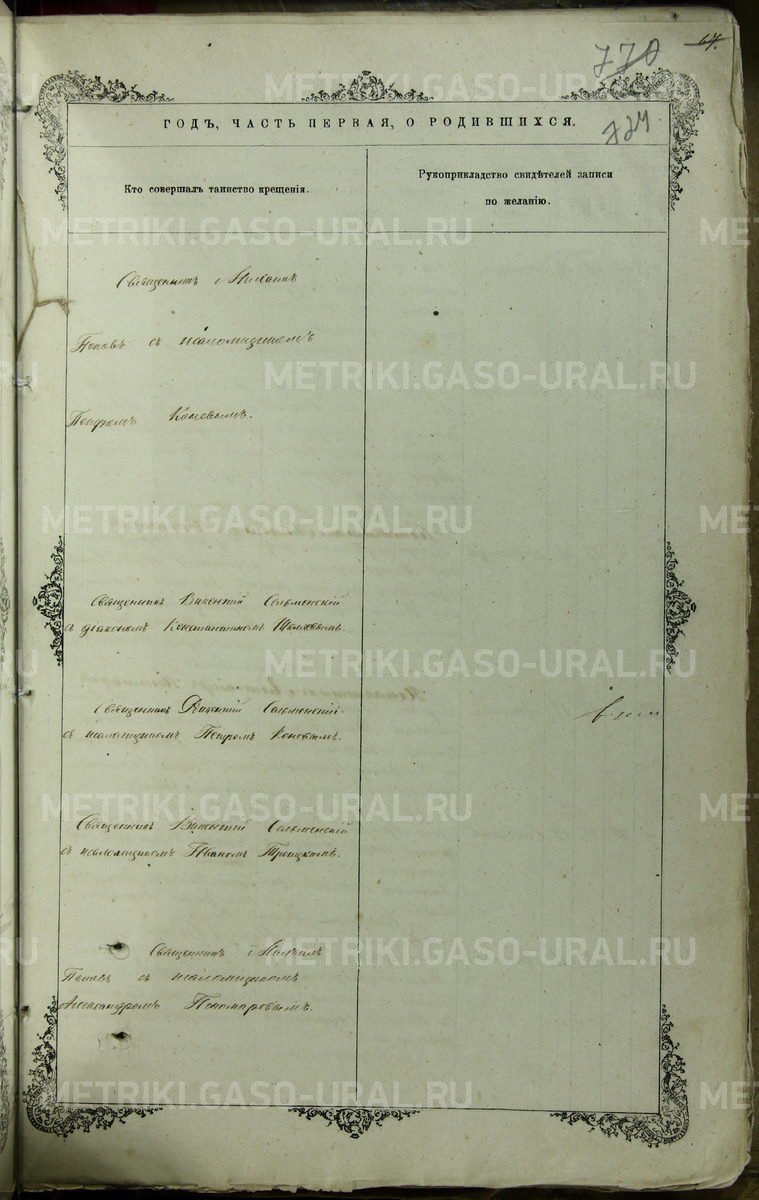 67.
770
724
ГОДЪ, ЧАСТЬ ПЕРВАЯ, О РОДИВШИХСЯ.
Кто совершалъ таинство крещенія.
Рукоприкладство свидѣтелей записи
по желанію.
Священникъ Михаилъ
Поповъ съ псаломщикомъ
Петромъ Коневымъ.
Священникъ Викентій Сельменскій
съ діакономъ Константиномъ
Священникъ Викентій Сельменскій
съ псаломщикомъ Петромъ Коневымъ.
Священникъ Викентій Сельменскій
съ псаломщикомъ Иваномъ Троицкимъ.
Священникъ Михаилъ
Поповъ съ псаломщикомъ
Александромъ Пономаревымъ.
METRIKI.GASO-URAL.RU